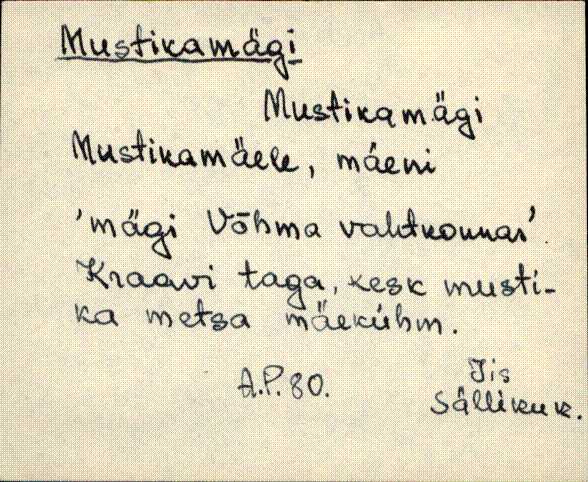 Mustikamägi
Mustikamägi
Mustikamäele, mäeni
'mägi Võhma vahtkonnas'.
Kraavi taga, kesk musti-
ka metsa mäekühm.
A.P. 80.
Jis
Sälliku k.